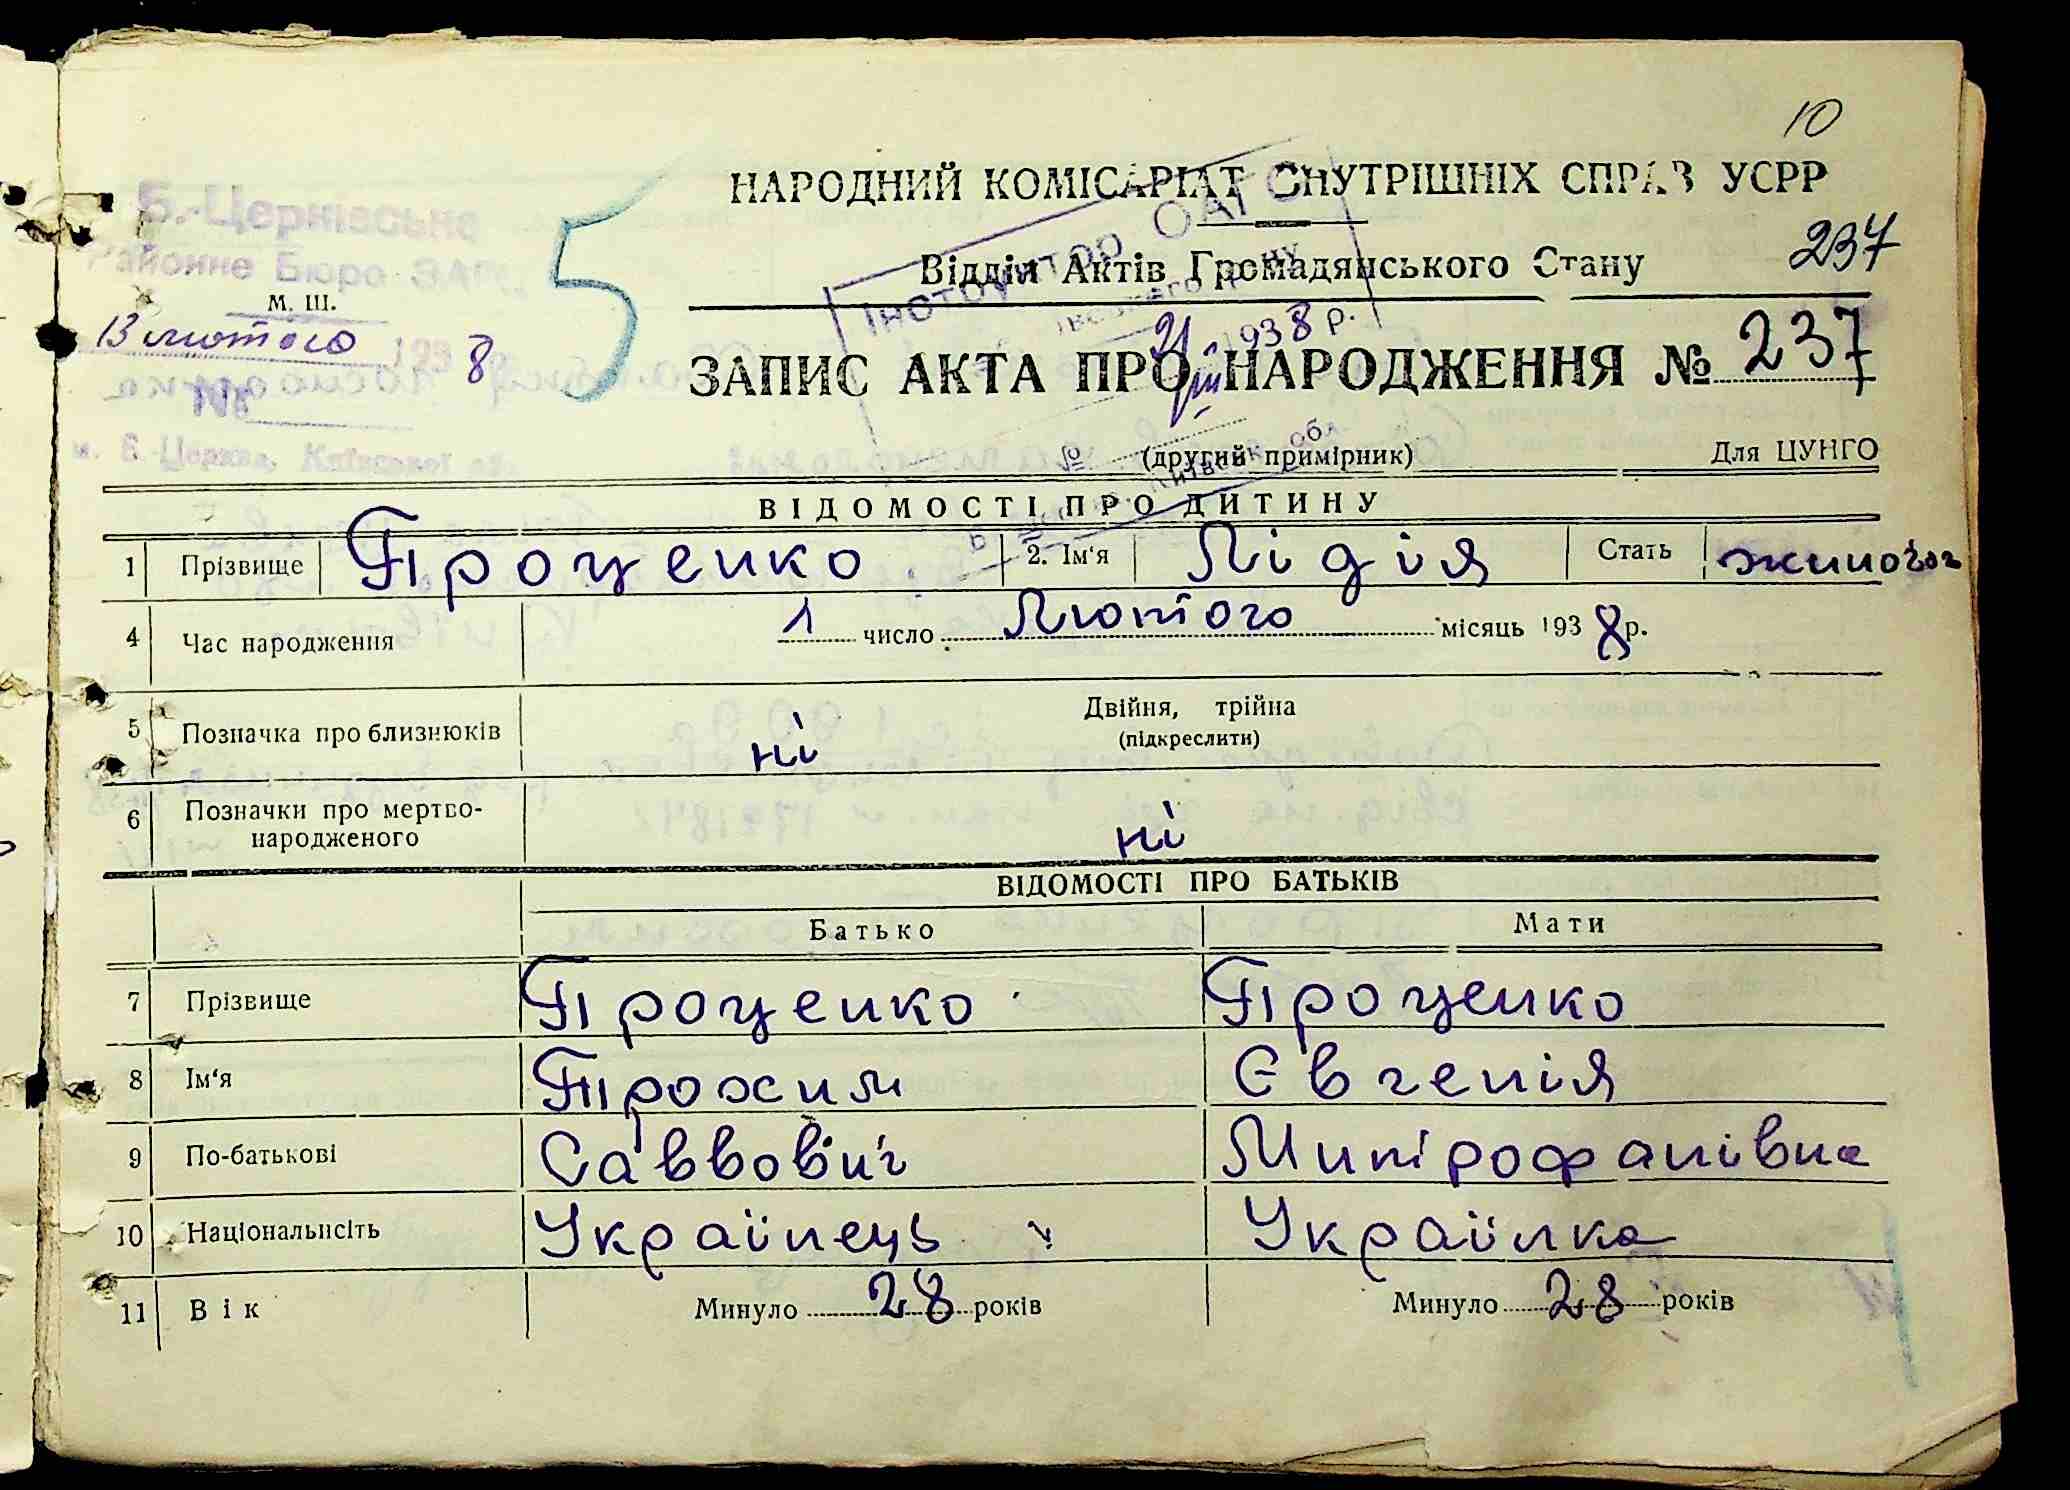 10
НАРОДНИЙ КОМІСАРІАТ ВНУТРІШНІХ СПРАВ УСРР
Б.-Церківське
Районне Бюро ЗАГС
Відділ Актів Громадянського Стану 237
М. Ш.
13 лютого 1938
№
м. Б-Церква, Київської об.
5
Інспектор ОАГС
21 III 1938 р.
ЗАПИС АКТА ПРО НАРОДЖЕННЯ № 237
(другий примірник) Для ЦУНГО
ВІДОМОСТІ ПРО ДИТИНУ
1 Прізвище Проценко 2. Ім'я Лідія Стать жиноча
4 Час народження 1 число Лютого місяць 1938 р.
5 Позначка про близнюків ні Двійня, трійна
(підкреслити)
6 Позначки про мертво-
народженого ні
ВІДОМОСТІ ПРО БАТЬКІВ
Батько Мати
7 Прізвище Проценко Проценко
8 Ім'я Трохим Євгенія
9 По-батькові Саввович Митрофанівна
10 Національнсіть Українець Українка
11 Вік Минуло 28 років Минуло 28 років